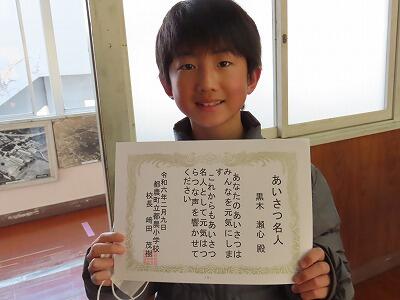 あいさつ名人
黒木 瀬心 殿
あなたのあいさつは
みんなを元気にしま
す
これからもあいさつ
名人として元気はつ
らつな声を響かせて
ください
令和六年二月九日
都農町立都農小学校
校長 崎田 茂樹